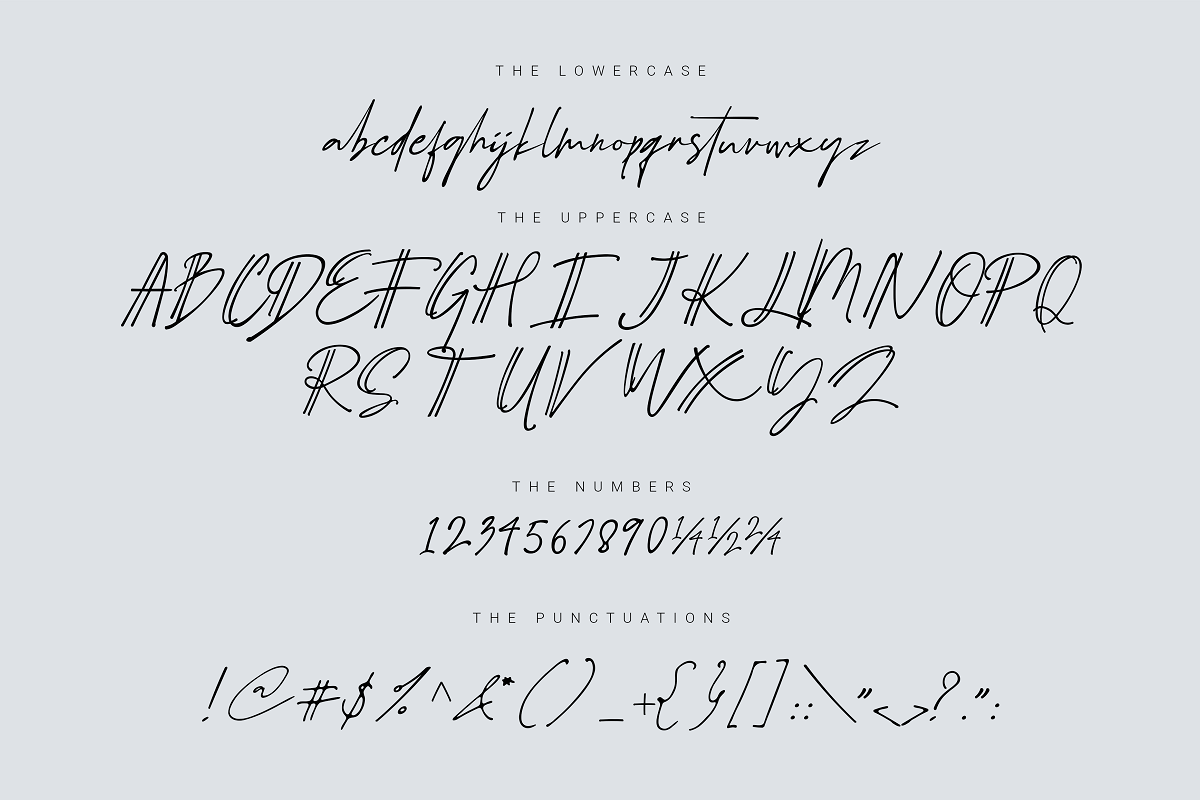 THE LOWERCASE
abcdefghijklmnopqrstuvwxyz
THE UPPERCASE
ABCDEFGHIJKLMNOPQ
RSTUVWXYZ
THE NUMBERS
1234567890¼½2/4
THE PUNCTUATIONS
!@#$%^&*()_+{}[]::\"<>?.":